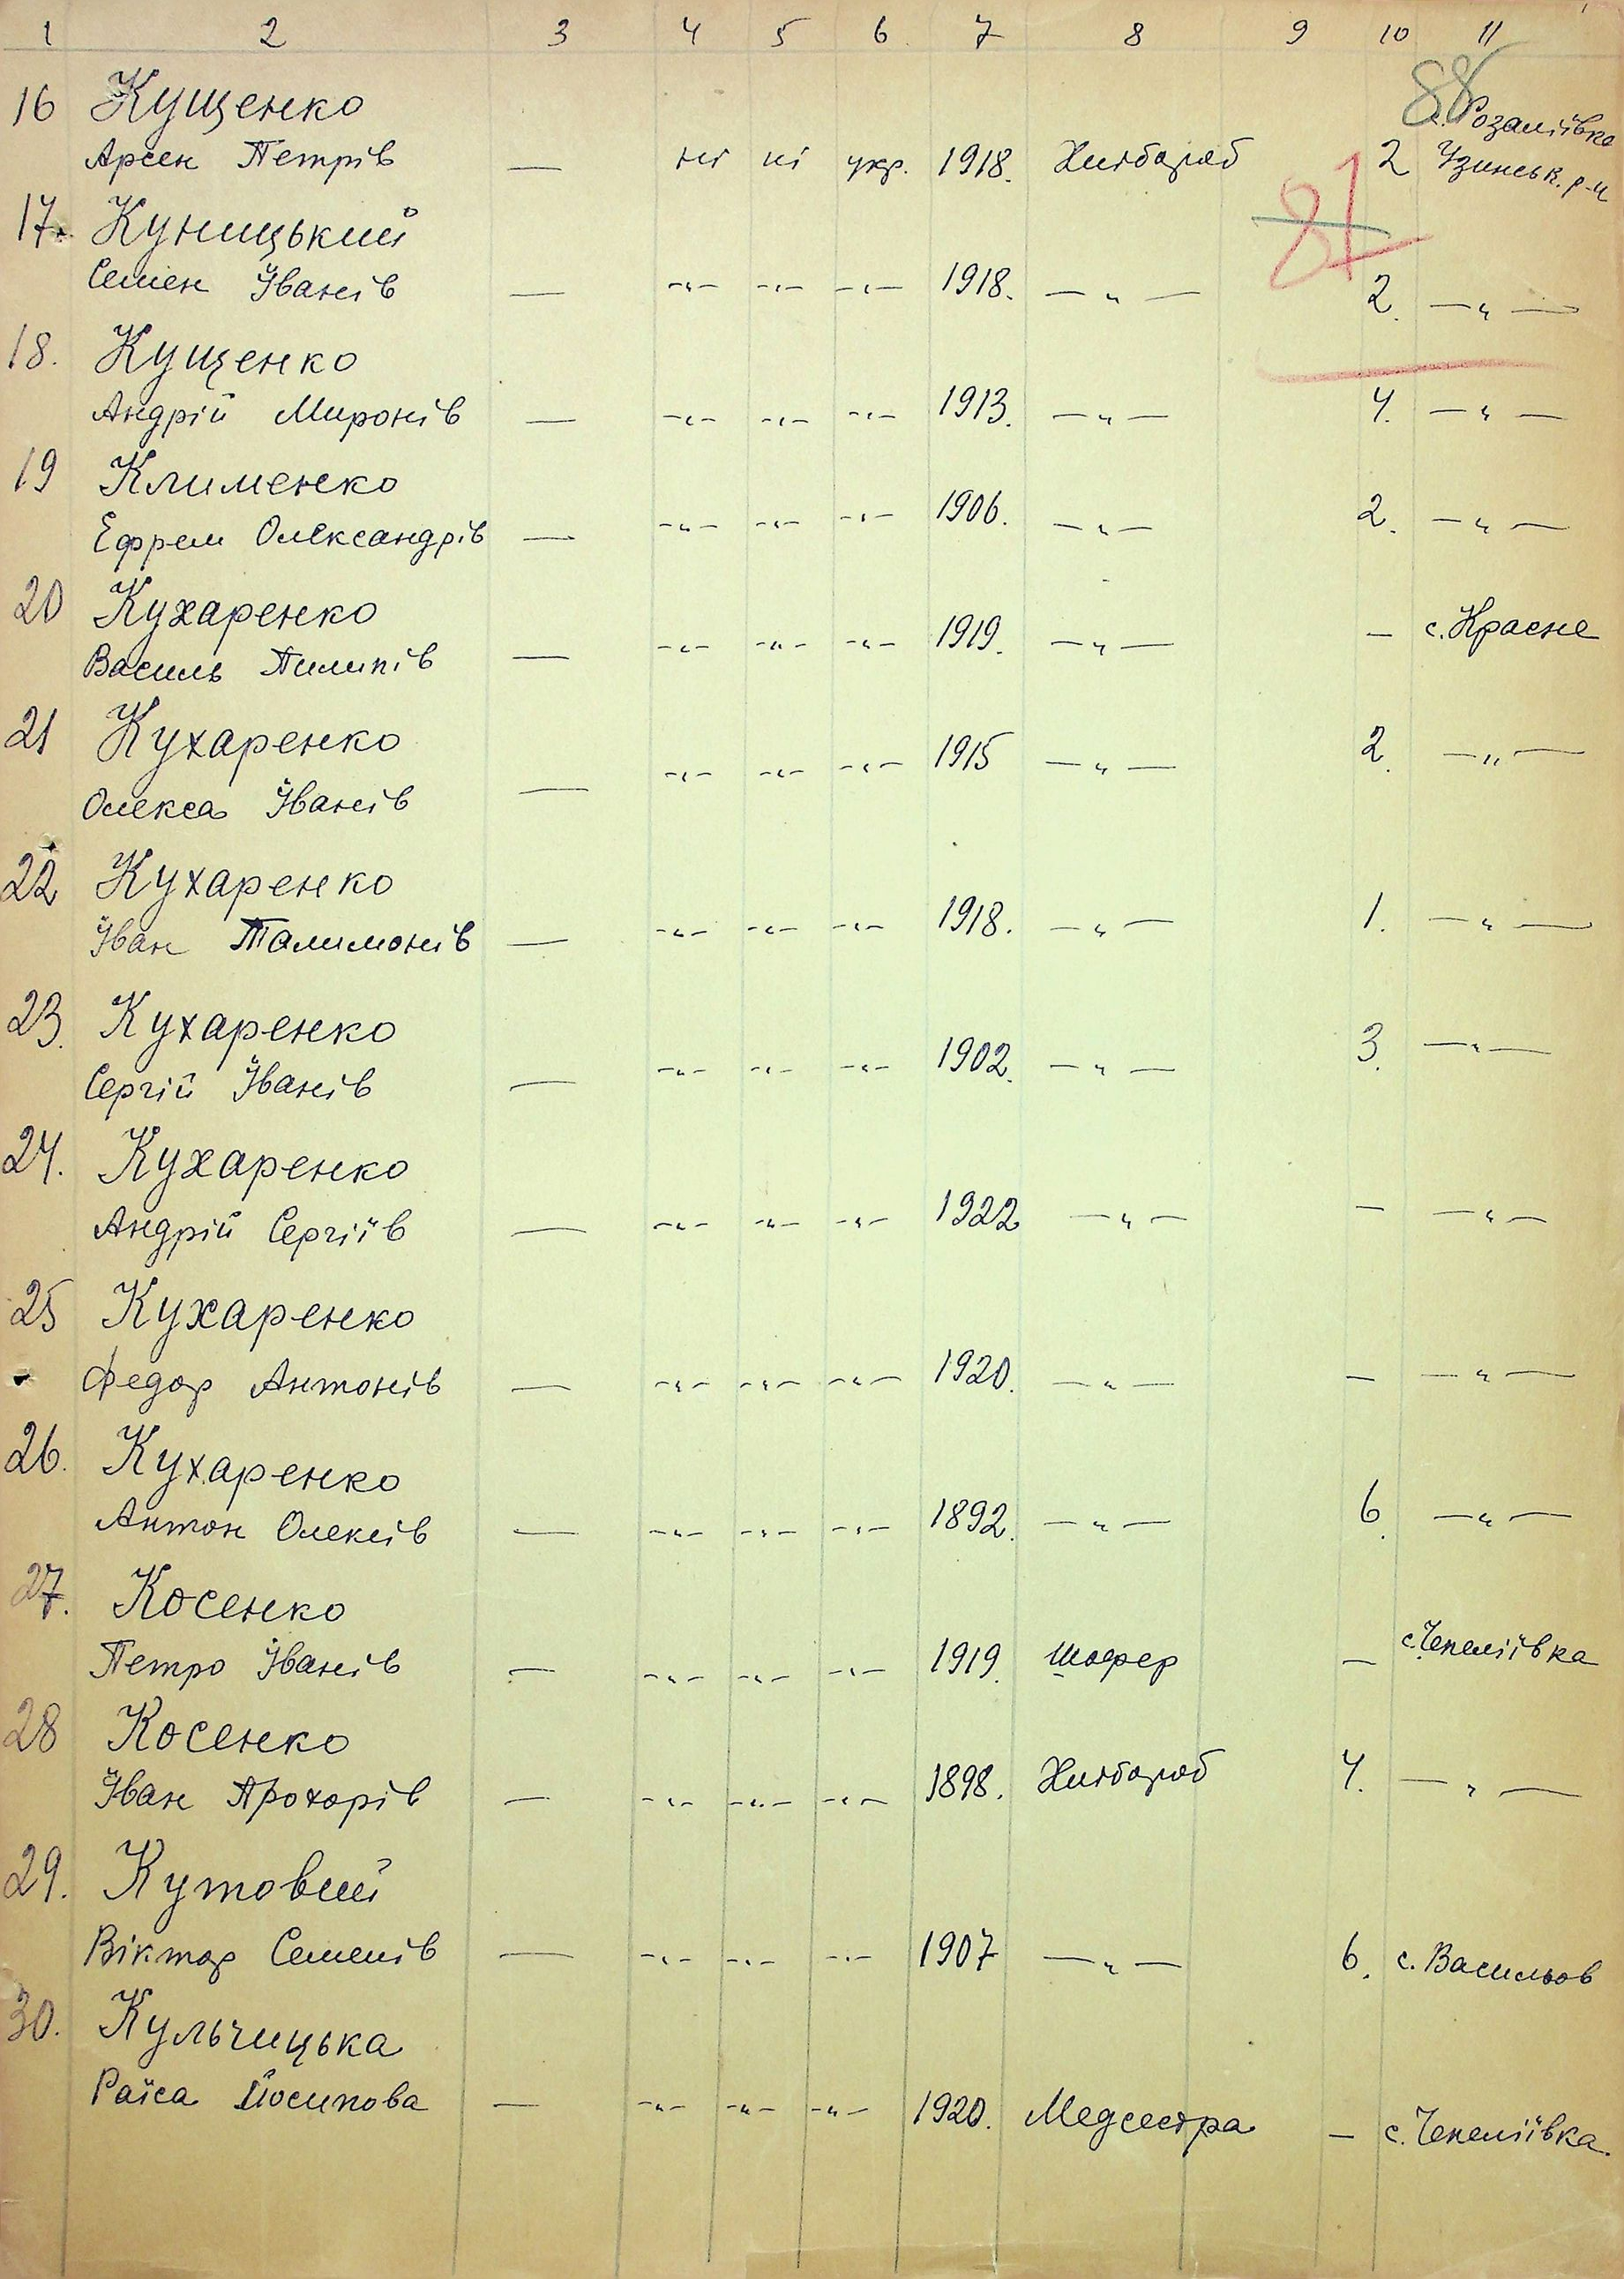 1 2 3 4 5 6 7 8 9 10 11
88
16 Кущенко с. Розаліївка
Арсен Петрів — ні ні укр. 1918. Хлібороб 2 Узинськ. р-н
81
17. Куницький
Семен Іванів — -"- -"- -"- 1918. —"— 2. —"—
18. Кущенко
Андрій Миронів — -"- -"- -"- 1913. —"— 4. —"—
19 Клименко
Ефрем Олександрів — -"- -"- -"- 1906. —"— 2. —"—
20 Кухаренко
Василь Пилипів — -"- -"- -"- 1919. —"— — с. Красне
21 Кухаренко
Олекса Іванів — -"- -"- -"- 1915 —"— 2. —"—
22 Кухаренко
Іван Талимонів — -"- -"- -"- 1918. —"— 1. —"—
23. Кухаренко
Сергій Іванів — -"- -"- -"- 1902. —"— 3. —"—
24. Кухаренко
Андрій Сергіїв — -"- -"- -"- 1922 —"— — —"—
25 Кухаренко
Федор Антонів — -"- -"- -"- 1920. —"— — —"—
26. Кухаренко
Антон Олексів — -"- -"- -"- 1892. —"— 6. —"—
27. Косенко
Петро Іванів — -"- -"- -"- 1919. Шофер — с. Чепеліївка
28 Косенко
Іван Прохорів — -"- -"- -"- 1898. Хлібороб 4. —"—
29. Кутовий
Віктор Семенів — -"- -"- -"- 1907 —"— 6. с. Васильов
30. Кульчицька
Раїса Йосипова — -"- -"- -"- 1920. Медсестра — с. Чепеліївка.